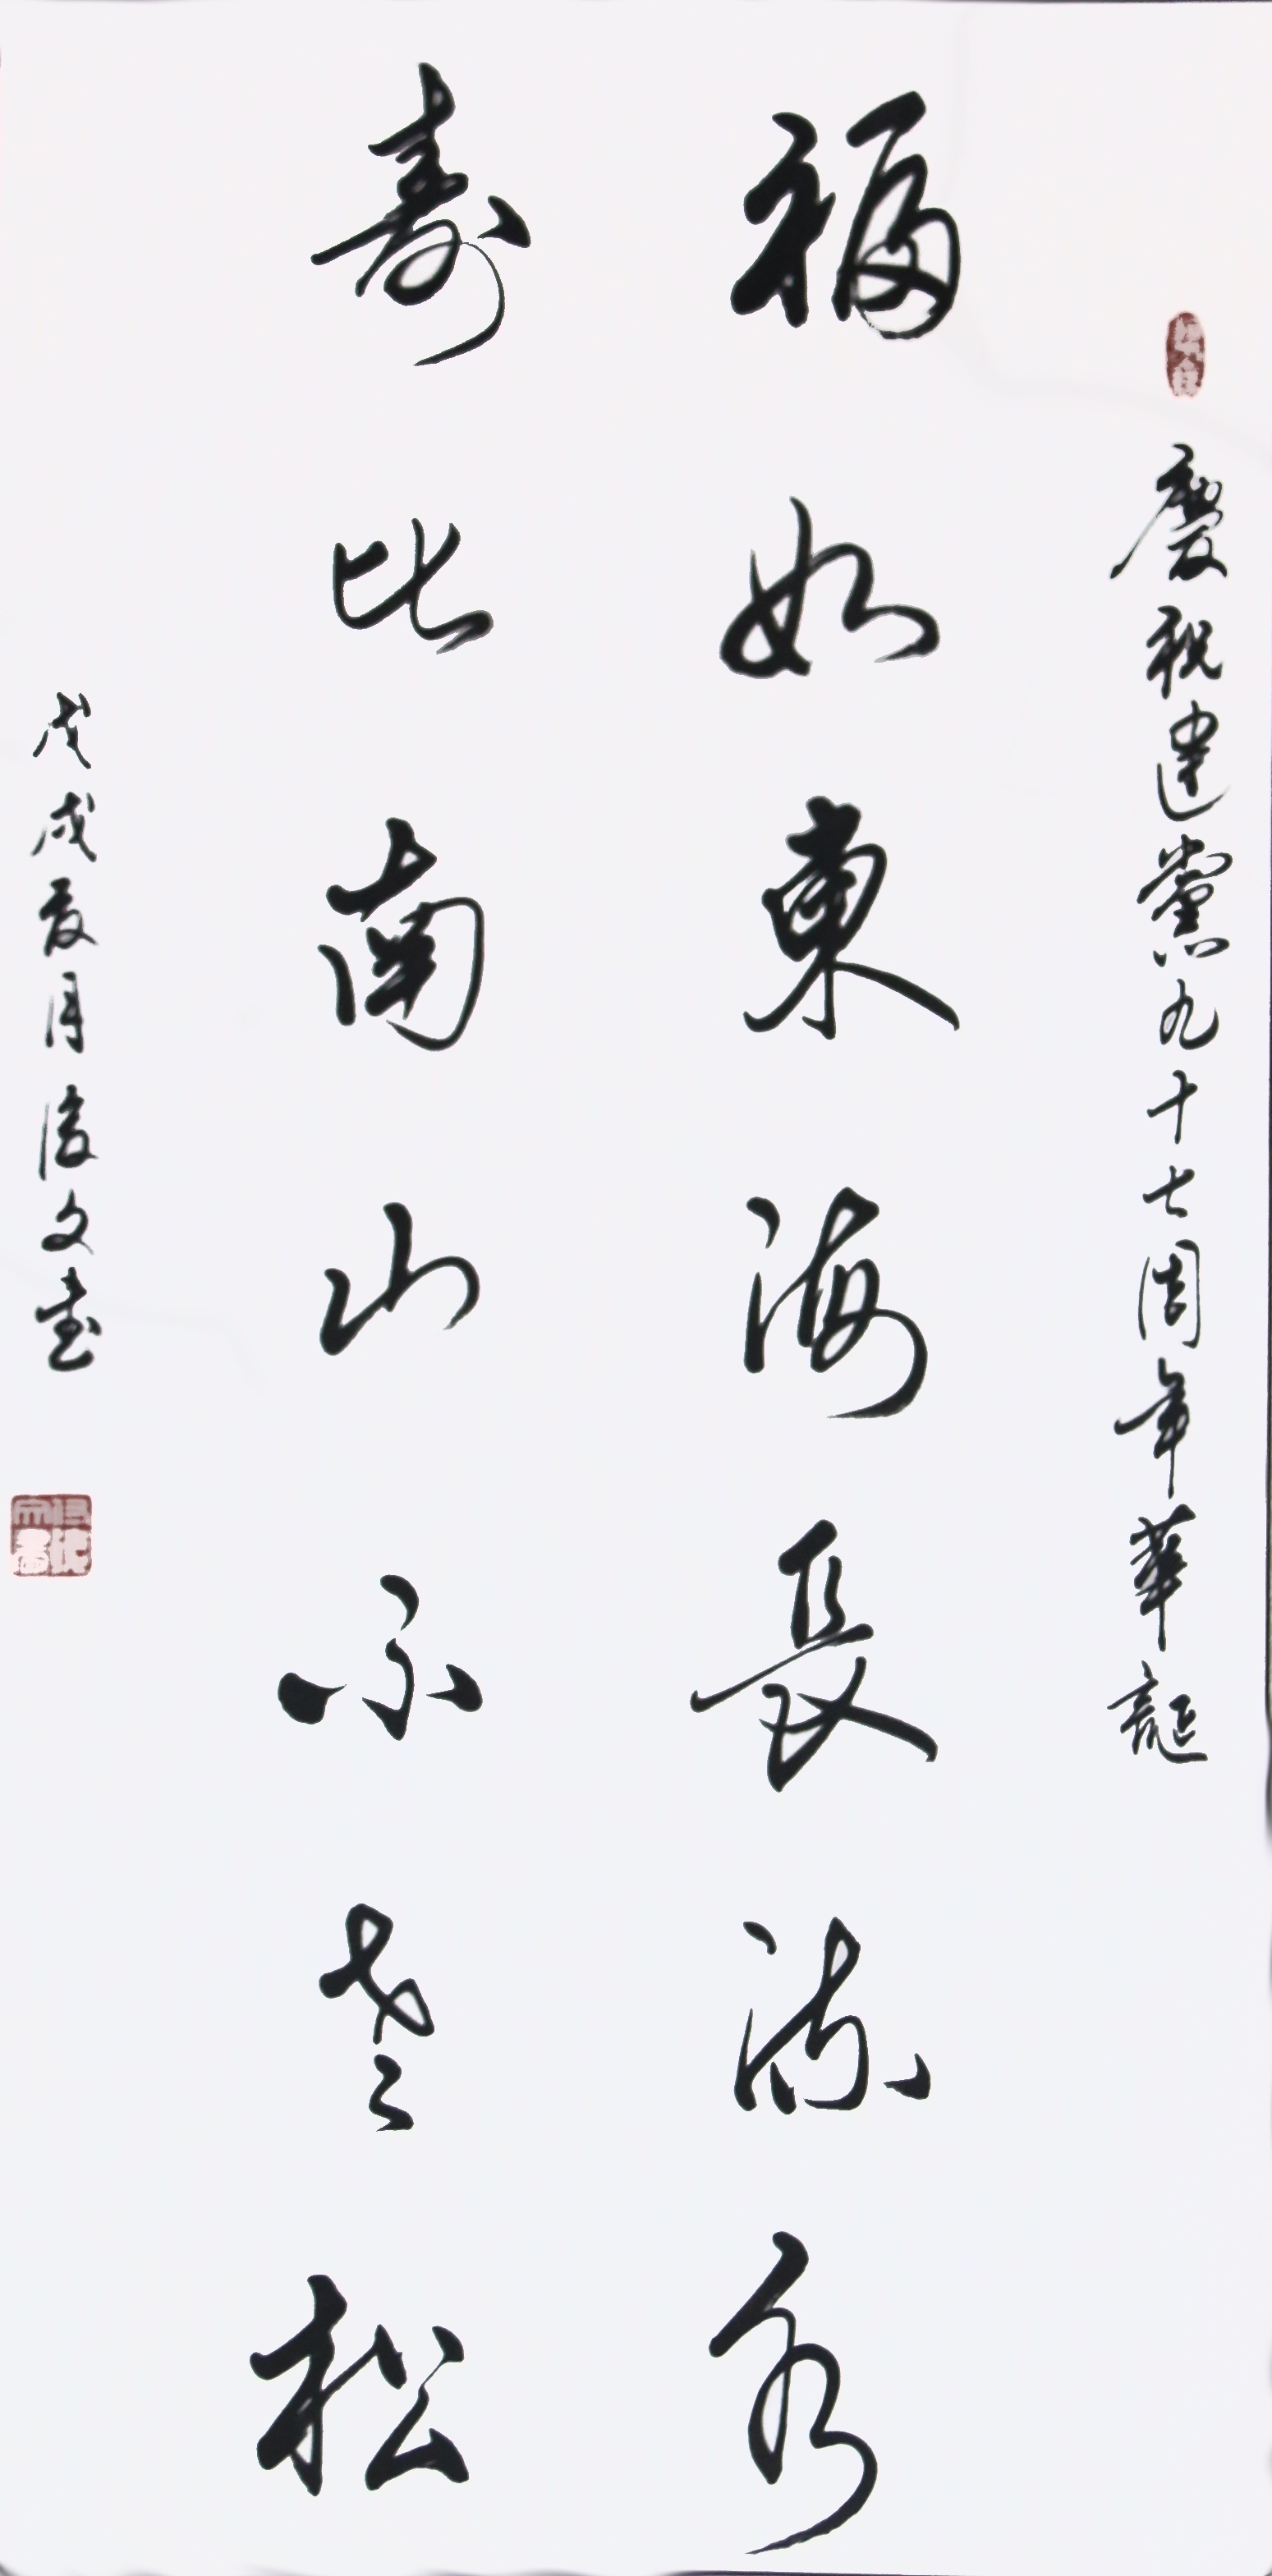 慶祝建黨九十七周年華誕
福如東海長流水
壽比南山不老松
戊戌夏月俊文書